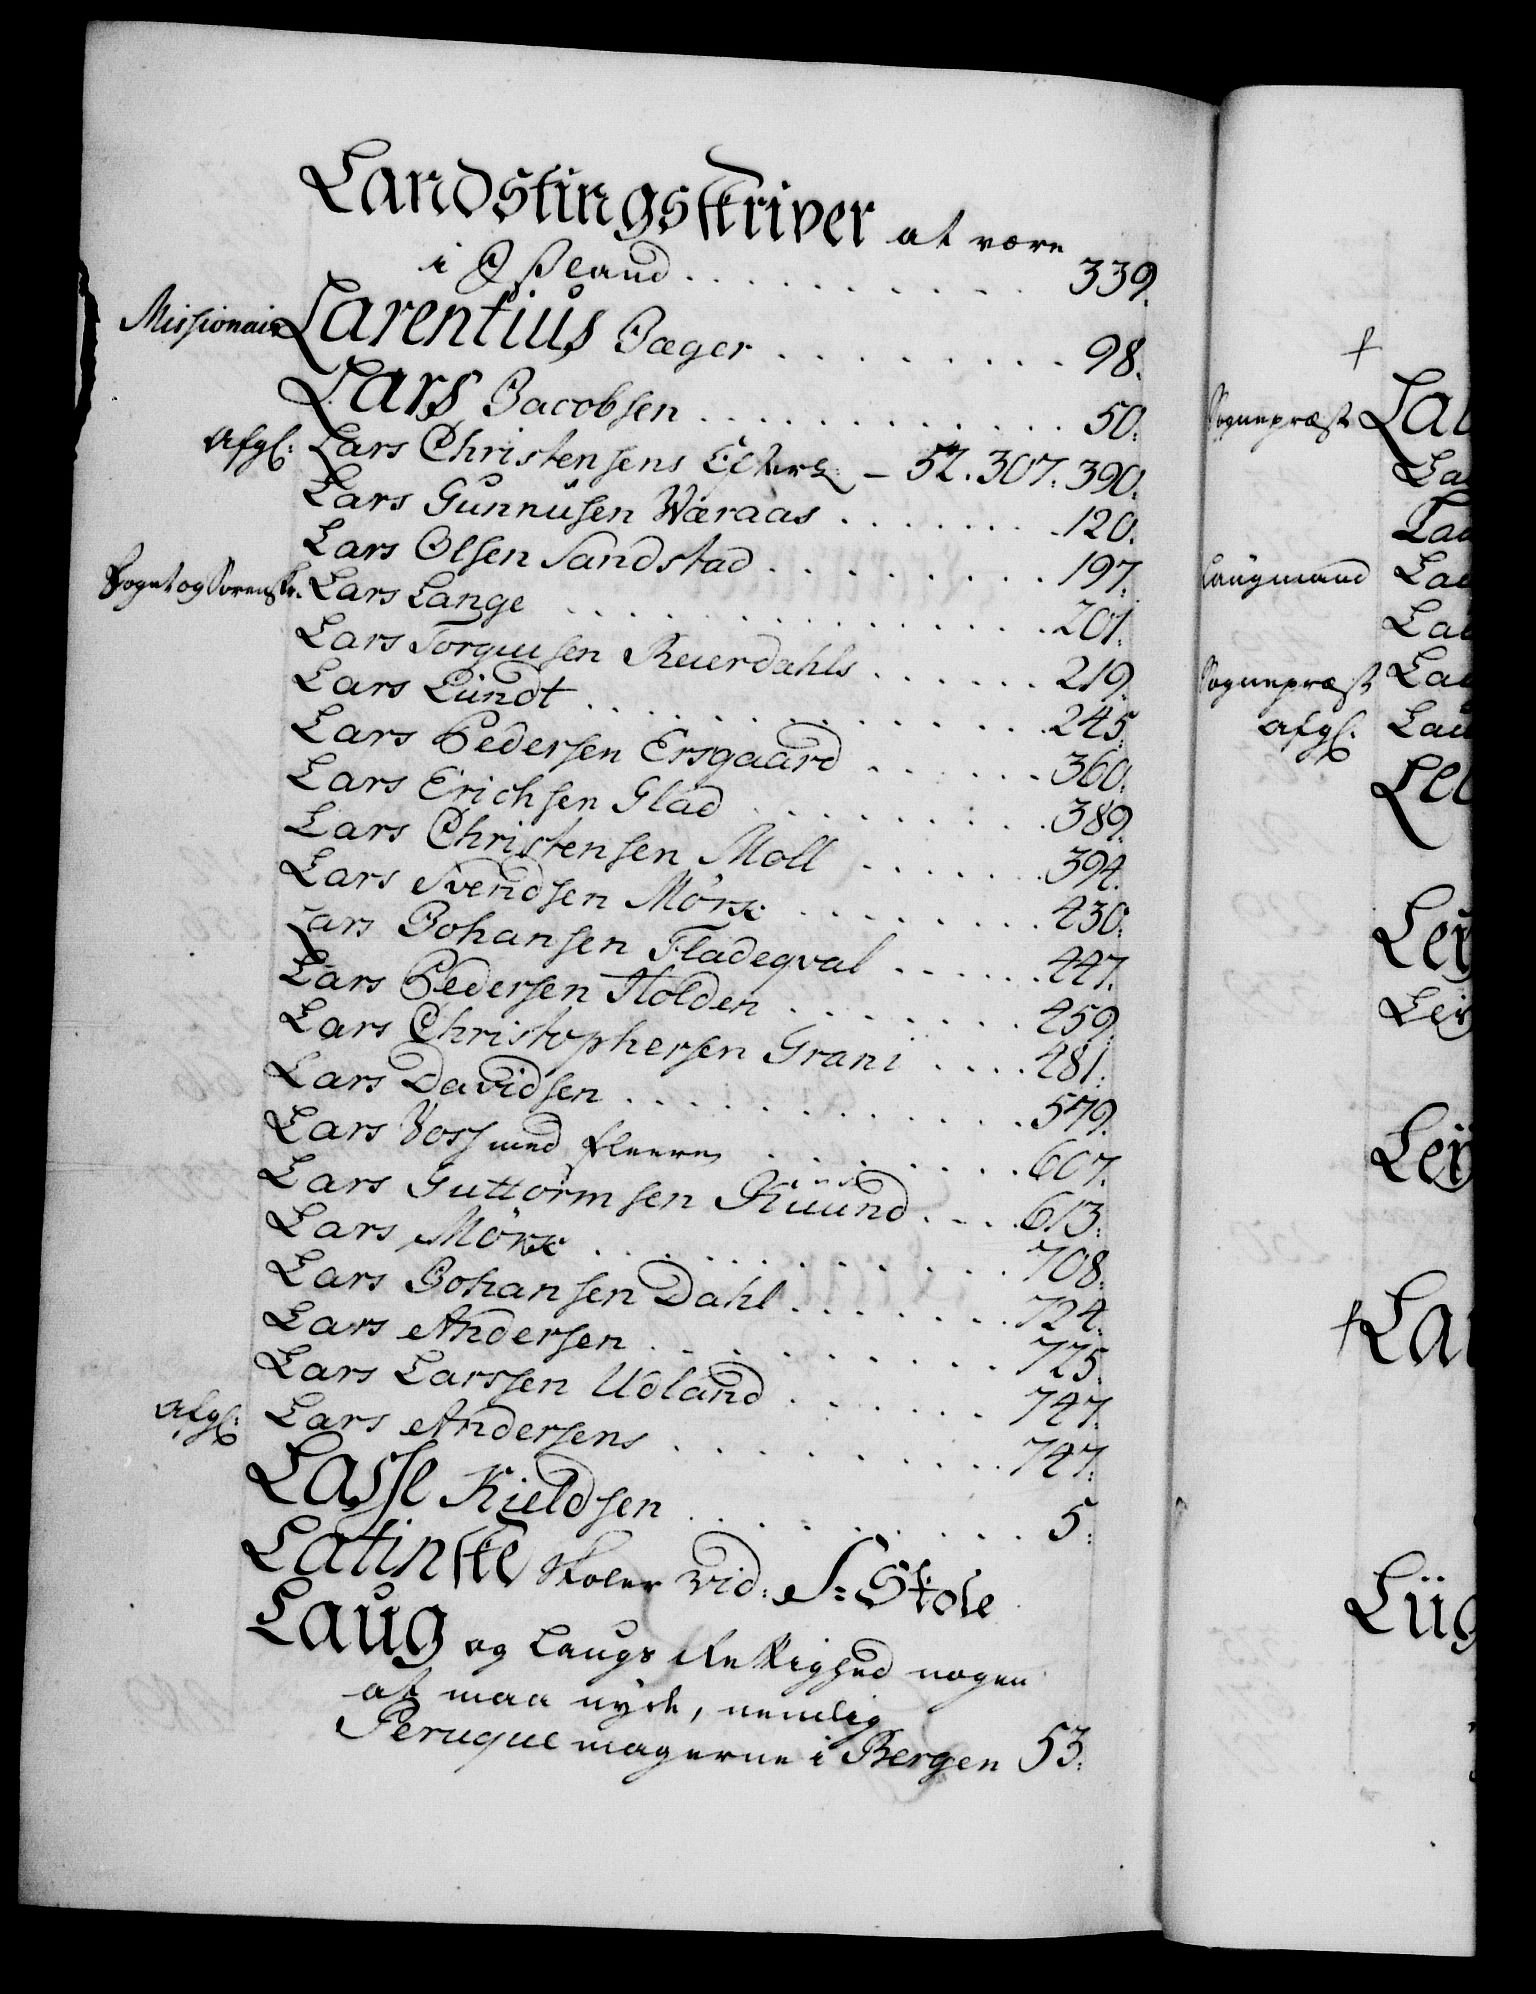 Landstingskriver at være
i Ißland . . . . . . . . . . 339.
Missionair Larentius Bæger . . . . . . . . 98.
Lars Jacobsen . . . . . . . . . . . . 50.
Afgl: Lars Christensens Efterl: – 52. 307. 390.
Lars Gunnusen Wæraas . . . . . . . 120.
Lars Olsen Sandstad . . . . . . . . . 197.
Foget og Sorenskr. Lars Lange . . . . . . . . . . . . 201.
Lars Torgiusen Reierdahls . . . . . . 219.
Lars Lundt . . . . . . . . . . . . 245.
Lars Pedersen Ersgaard . . . . . . 360.
Lars Erichsen Glad . . . . . . . . . 389.
Lars Christensen Moll . . . . . . . 394.
Lars Svendsen Mörk . . . . . . . . 430.
Lars Johansen Fladeqval . . . . . . 447.
Lars Pedersen Holden . . . . . . . . 459.
Lars Christophersen Grani . . . . . 481.
Lars Davidsen . . . . . . . . . . . . 579.
Lars Voss med fleere . . . . . . . . 607.
Lars Guttormsen . . . . 613.
Lars Mörk . . . . . . . . . . . . 708.
Lars Johansen Dahl . . . . . . . . 724.
Lars Andersen . . . . . . . . . . . 725.
Lars Larssen Udland . . . . . . . 747.
Afgl: Lars Andersens . . . . . . . . . . 747.
Lasse Kieldsen . . . . . . . . . . 5.
Latinske Skoler vid: S: Skole
Laug og Laugs Rettighed nogen
at maa nyde, nemlig
Peruquemagerne i Bergen 53.
†
Sognepræst Lau
Lau
Lau
Laugmand Lau
Lau
Sognepræst Lau
Afgl. Lau
Le
Ley
Ley
Ley
† La
Liig